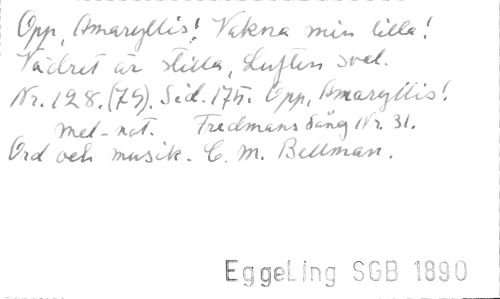 Opp, Amaryllis! Vakna min lilla!
Vädret är stilla, Luften sval.
Nr. 128. (79). Sid. 175. Opp, Amaryllis!
mel-not. Fredmans Sång Nr. 31.
Ord och musik - C. M. Bellman.
EggeLing SGB 1890